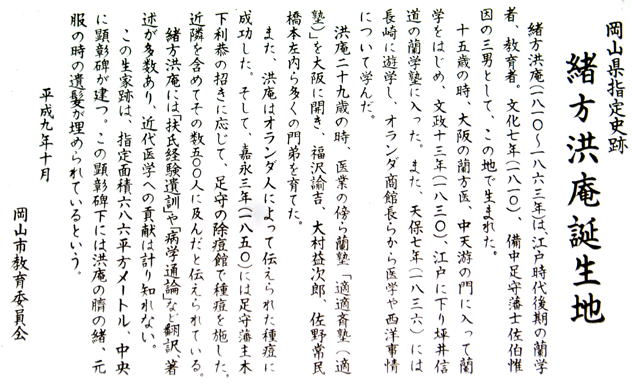 岡山県指定史跡
緒方洪庵誕生地
緒方洪庵(一八一〇～一八六三年)は、江戸時代後期の蘭学
者、教育者。文化七年(一八一〇)、備中足守藩士佐伯惟
因の三男として、この地で生まれた。
十五歳の時、大阪の蘭方医、中天游の門に入って蘭
学をはじめ、文政十三年(一八三〇)、江戸に下り坪井信
道の蘭学塾に入った。また、天保七年(一八三六)には
長崎に遊学し、オランダ商館長らから医学や西洋事情
について学んだ。
洪庵二十九歳の時、医業の傍ら蘭塾「適適斎塾(適
塾)」を大阪に開き、福沢諭吉、大村益次郎、佐野常民
橋本左内ら多くの門弟を育てた。
また、洪庵はオランダ人によって伝えられた種痘に
成功した。そして、嘉永三年(一八五〇)には足守藩主木
下利恭の招きに応じて、足守の除痘館で種痘を施した。
近隣を含めてその数五〇〇人に及んだと伝えられている。
緒方洪庵には「扶氏経験遺訓」や「病学通論」など翻訳、著
述が多数あり、近代医学への貢献は計り知れない。
この生家跡は、指定面積六八六平方メートル、中央
に顕彰碑が建つ。この顕彰碑下には洪庵の臍の緒、元
服の時の遺髪が埋められているという。
平成九年十月
岡山市教育委員会